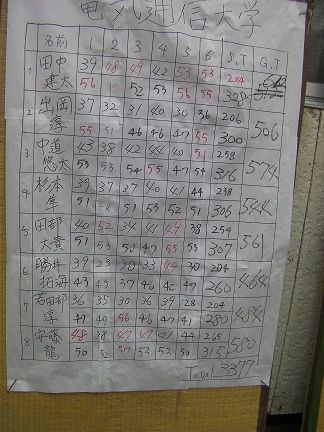 電気通信大学
名前 1 2 3 4 5 6 S.T G.T
1 田中 39 48 49 42 53 53 284
健太 56 52 53 56 55 328 612
2 出岡 37 32 31 40 30 36 206
淳 55 51 46 46 47 55 300 506
3 中道 43 38 42 44 40 51 258
悠太 53 53 54 55 47 54 316 574
4 杉本 39 37 37 40 41 44 238
隼 51 51 53 52 51 306 544
5 田部 40 52 34 41 49 38 254
大貴 51 53 50 47 55 53 307 561
6 勝井 39 23 30 33 30 204
拓海 43 37 46 42 47 260 464
7 36 35 30 36 39 28 204
淳 47 49 56 46 47 280 484
8 安藤 48 38 47 47 44 265
龍 50 52 53 52 50 315 580
Total 3377